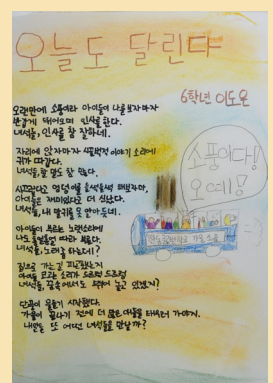 오늘도 달린다
6학년 이도은
오랜만에 소풍이라 아이들이 나를 보자마자
반갑게 뛰어오며 인사를 한다.
녀석들, 인사를 참 잘하네.
자리에 앉자마자 시끌벅적 이야기 소리에
귀가 따갑다.
녀석들, 말도 참 많다.
시끄럽다고 엉덩이를 들썩들썩 해보지만,
아이들은 재미있다고 더 신났다.
녀석들, 내 말귀를 못 알아듣네.
아이들이 부르는 노랫소리에
나도 흥얼흥얼 따라 부른다.
녀석들, 노래 좀 하는데?
집으로 가는 길 피곤했는지
아이들 코고는 소리가 드르렁 드르렁
녀석들, 꿈속에서도 놀고 있겠지?
단풍이 물들기 시작했다.
가을이 끝나기 전에 더 많은 아이들을 태우러 가야지.
내일은 또 어떤 녀석들을 만날까?
소풍이다!
오예!
가을 소풍